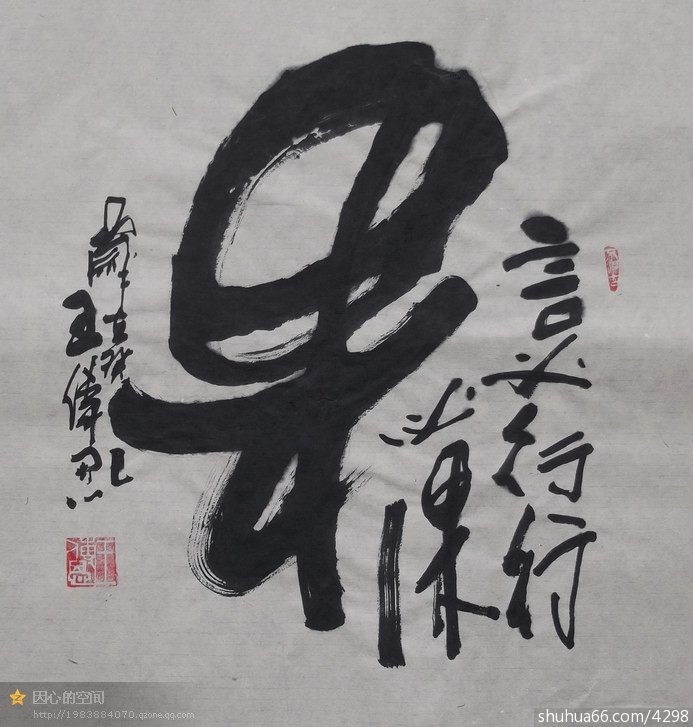 言必行行
必果
果
歲在癸巳
王偉思
因心的空间
http://1983884070.qzone.qq.com
shuhua66.com/4298